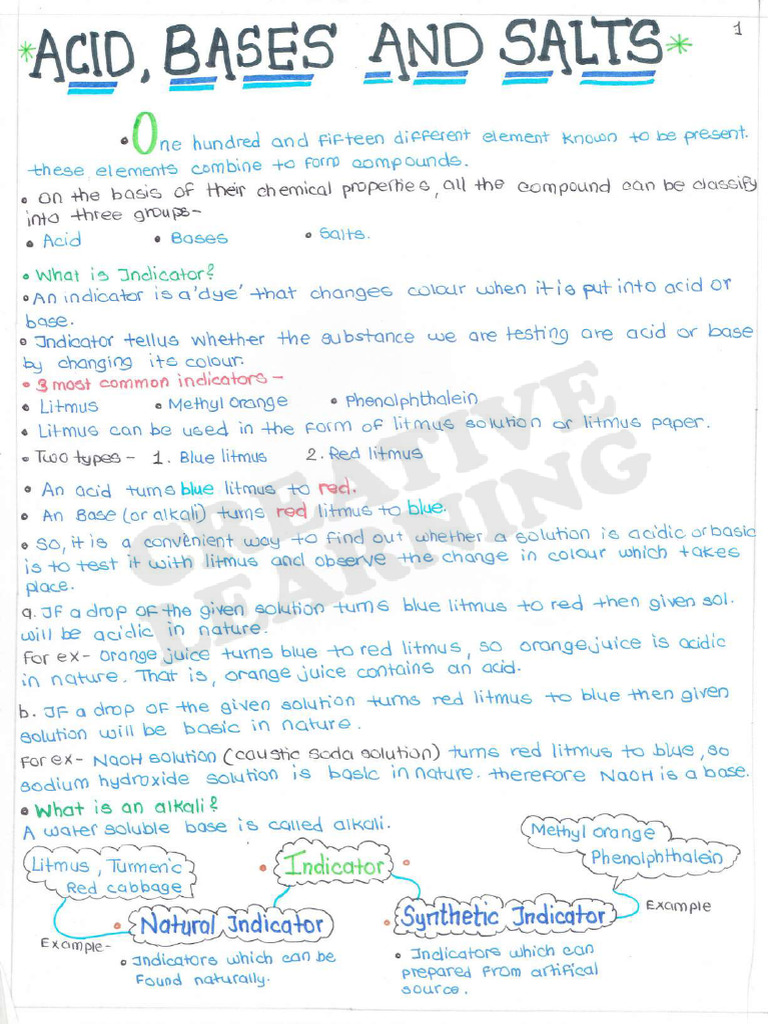 1
*ACID, BASES AND SALTS*
• One hundred and fifteen different element known to be present.
these elements combine to form compounds.
• on the basis of their chemical properties, all the compound can be classify
into three groups-
• Acid • Bases • Salts.
• What is Indicator?
• An indicator is a 'dye' that changes colour when it is put into acid or
base.
• Indicator tell us whether the substance we are testing are acid or base
by changing its colour.
• 3 most common indicators-
• Litmus • Methyl orange • Phenolphthalein
• Litmus can be used in the form of litmus solution or litmus paper.
• Two types - 1. Blue litmus 2. Red litmus
• An acid turns blue litmus to red.
• An Base (or alkali) turns red litmus to blue.
• So, it is a convenient way to find out whether a solution is acidic or basic
is to test it with litmus and observe the change in colour which takes
place.
a. If a drop of the given solution turns blue litmus to red then given sol.
will be acidic in nature.
For ex- orange juice turns blue to red litmus, so orange juice is acidic
in nature. That is, orange juice contains an acid.
b. If a drop of the given solution turns red litmus to blue then given
solution will be basic in nature.
For ex- NaOH solution (caustic soda solution) turns red litmus to blue, so
sodium hydroxide solution is basic in nature. therefore NaOH is a base.
• What is an alkali?
A water soluble base is called alkali.
Litmus, Turmeric
Red cabbage
Example-
• Indicator •
Methyl orange
Phenolphthalein
Example
• Natural Indicator
• Indicators which can be
found naturally.
• Synthetic Indicator
• Indicators which can
prepared from artifical
source.
CREATIVE
LEARNING